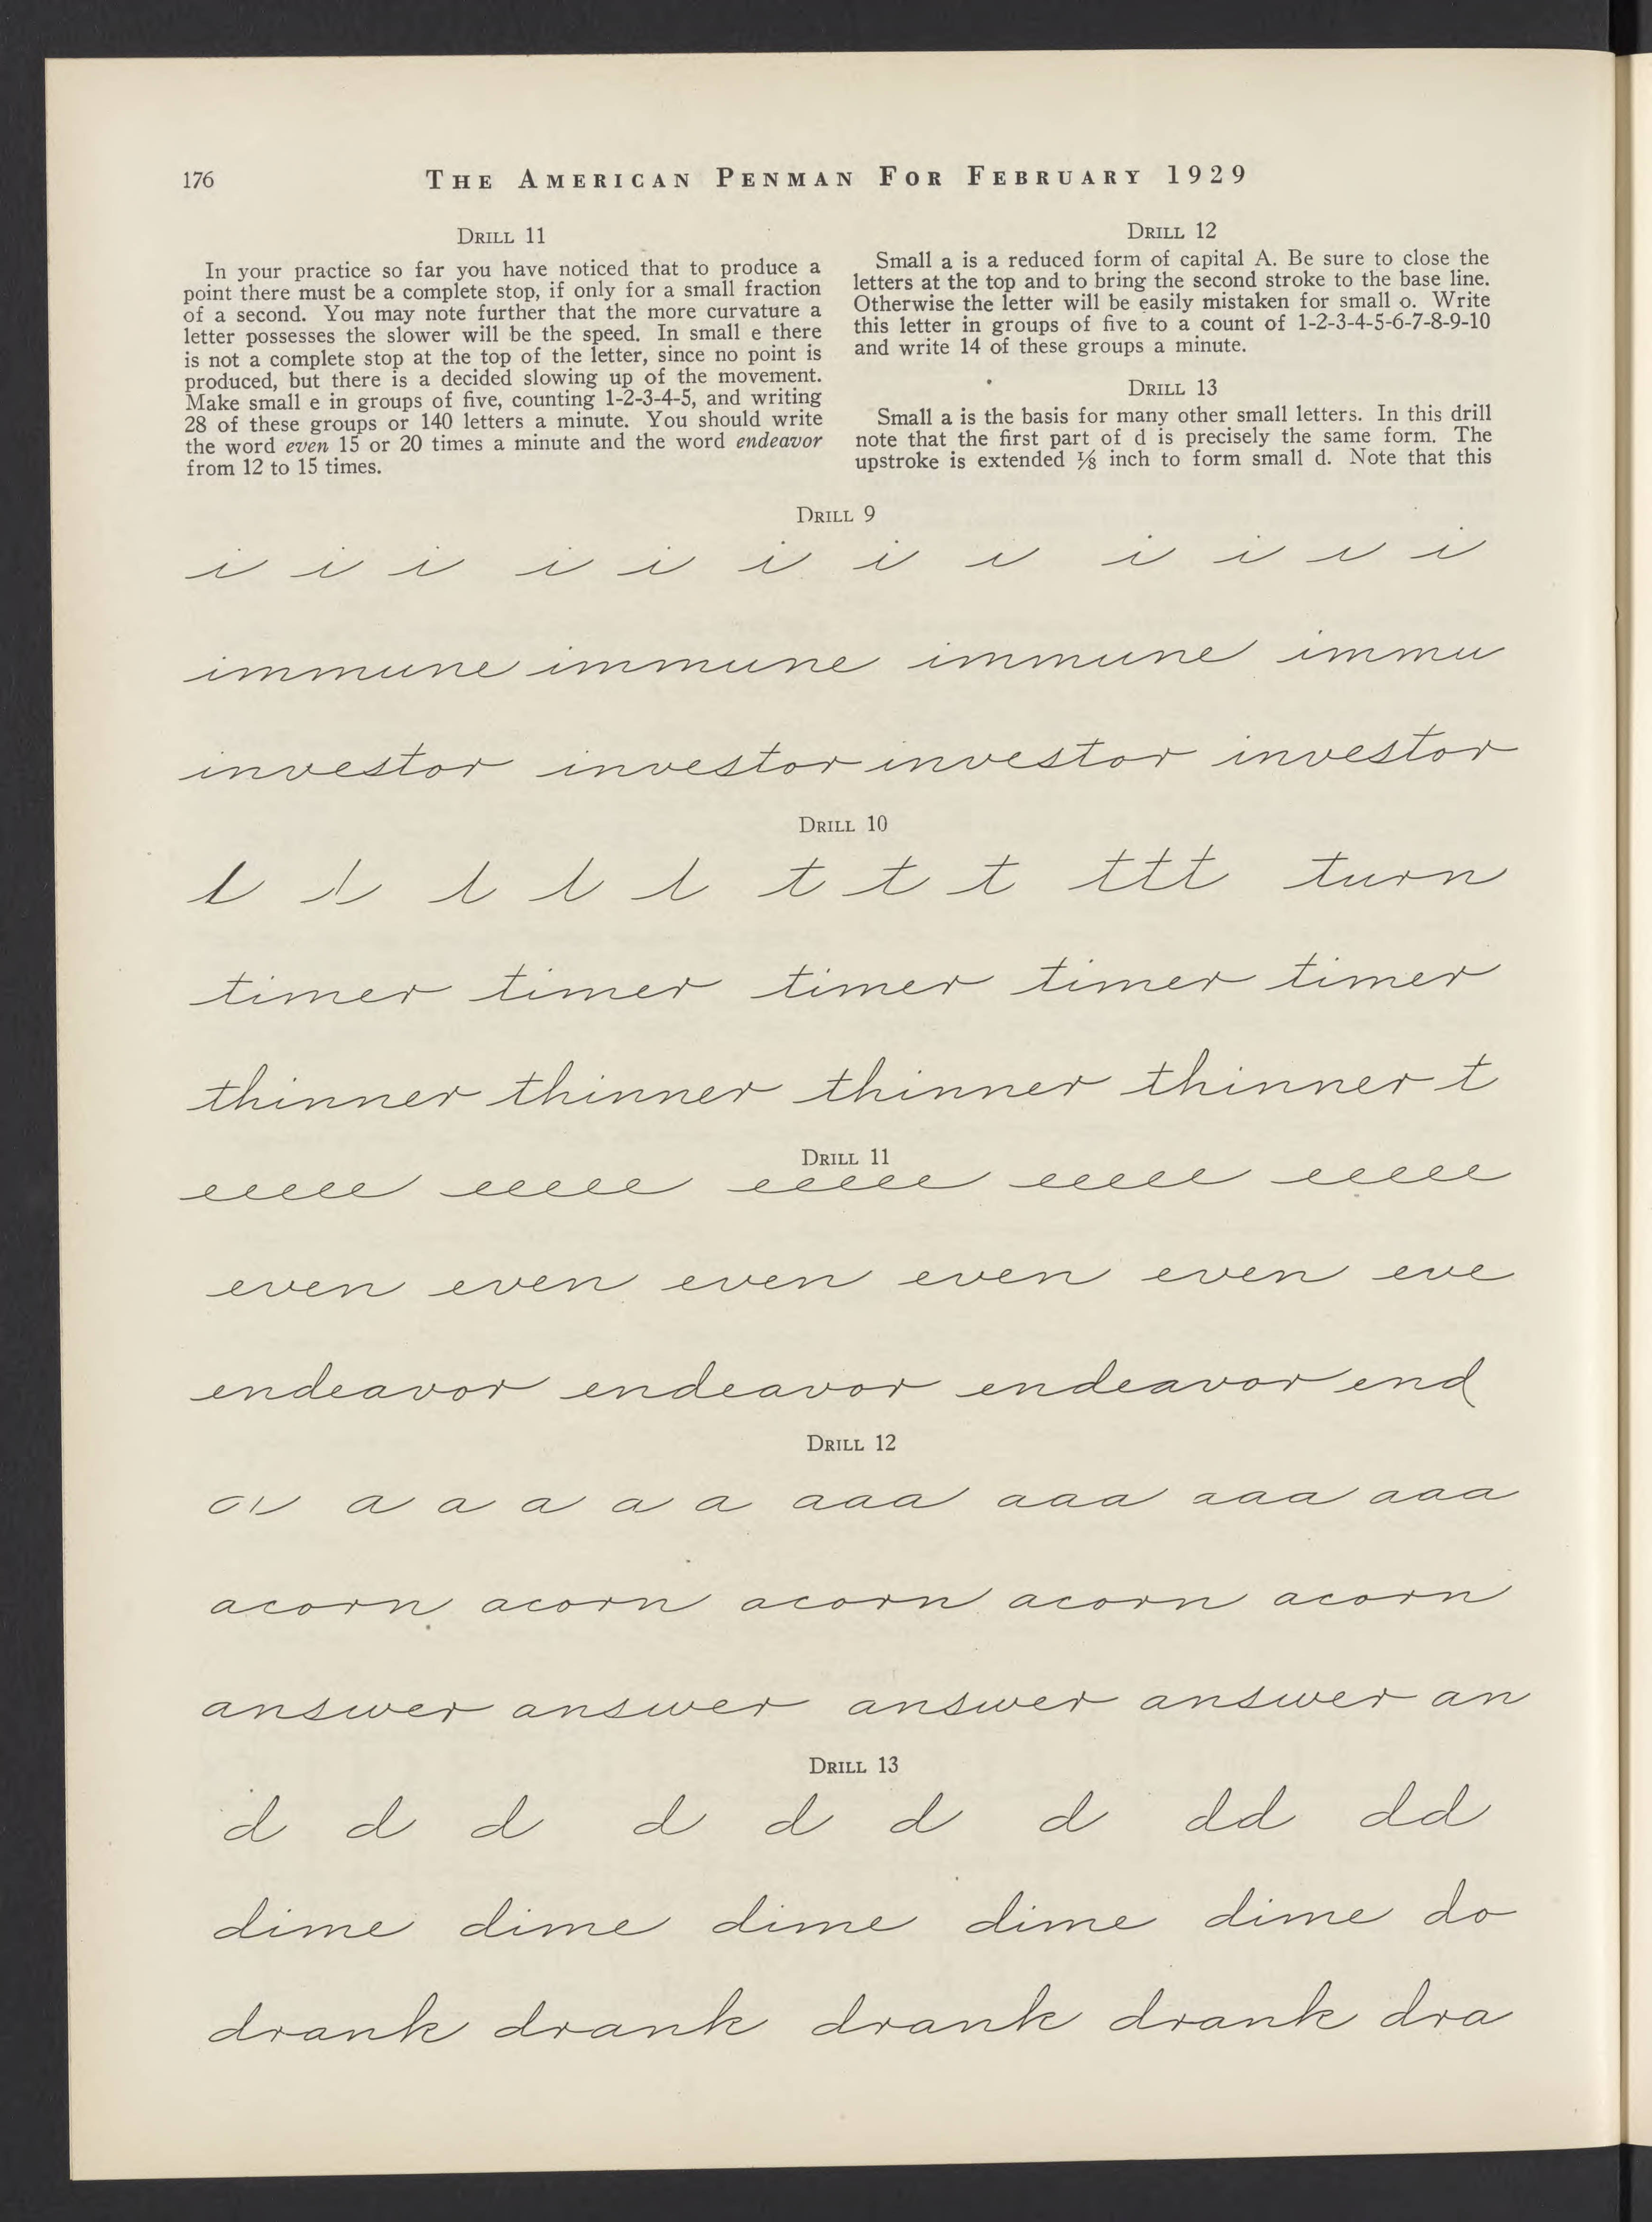 176
THE AMERICAN PENMAN FOR FEBRUARY 1929
DRILL 11
In your practice so far you have noticed that to produce a
point there must be a complete stop, if only for a small fraction
of a second. You may note further that the more curvature a
letter possesses the slower will be the speed. In small e there
is not a complete stop at the top of the letter, since no point is
produced, but there is a decided slowing up of the movement.
Make small e in groups of five, counting 1-2-3-4-5, and writing
28 of these groups or 140 letters a minute. You should write
the word even 15 or 20 times a minute and the word endeavor
from 12 to 15 times.
DRILL 12
Small a is a reduced form of capital A. Be sure to close the
letters at the top and to bring the second stroke to the base line.
Otherwise the letter will be easily mistaken for small o. Write
this letter in groups of five to a count of 1-2-3-4-5-6-7-8-9-10
and write 14 of these groups a minute.
DRILL 13
Small a is the basis for many other small letters. In this drill
note that the first part of d is precisely the same form. The
upstroke is extended ⅛ inch to form small d. Note that this
DRILL 9
i i i i i i i i i i i i
immune immune immune immu
investor investor investor investor
DRILL 10
t t t t t t t t ttt turn
timer timer timer timer timer
thinner thinner thinner thinner t
DRILL 11
eeeee eeeee eeeee eeeee eeeee
even even even even even eve
endeavor endeavor endeavor end
DRILL 12
a a a a a a aaa aaa aaa aaa
acorn acorn acorn acorn acorn
answer answer answer answer an
DRILL 13
d d d d d d d dd dd
dime dime dime dime dime do
drank drank drank drank dra